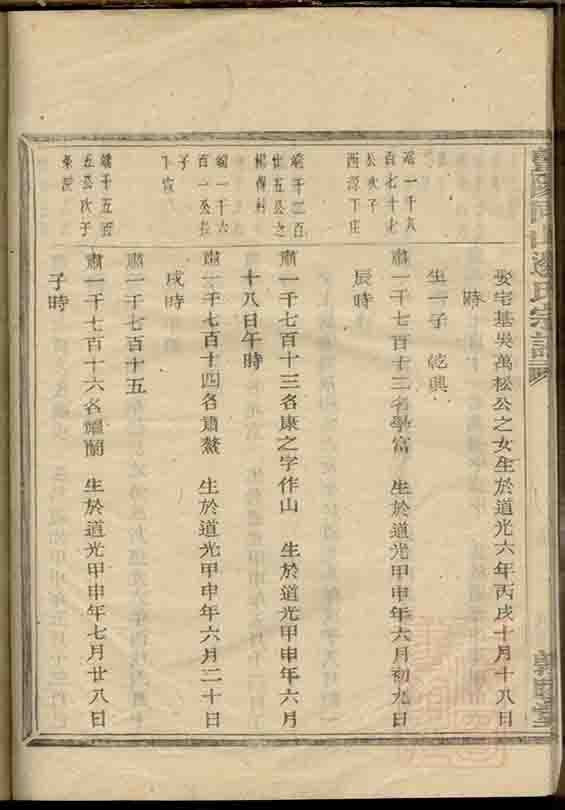 娶宅基吳萬松公之女生於道光六年丙戌十月十八日
時
生一子 乾興
端一千六
百七十七
公次子
西源下庄
肅一千七百十二名學富 生於道光甲申年六月初九日
辰時
端一千二百
廿五公之
肅一千七百十三名康之字作山 生於道光甲申年六月
十八日午時
端一千六
百一公長
子
下宅
肅一千七百十四名肅鰲 生於道光甲申年六月二十日
戌時
肅一千七百十五
端千五百
五公次子
肅一千七百十六名耀蘭 生於道光甲申年七月廿八日
子時
氏宗譜